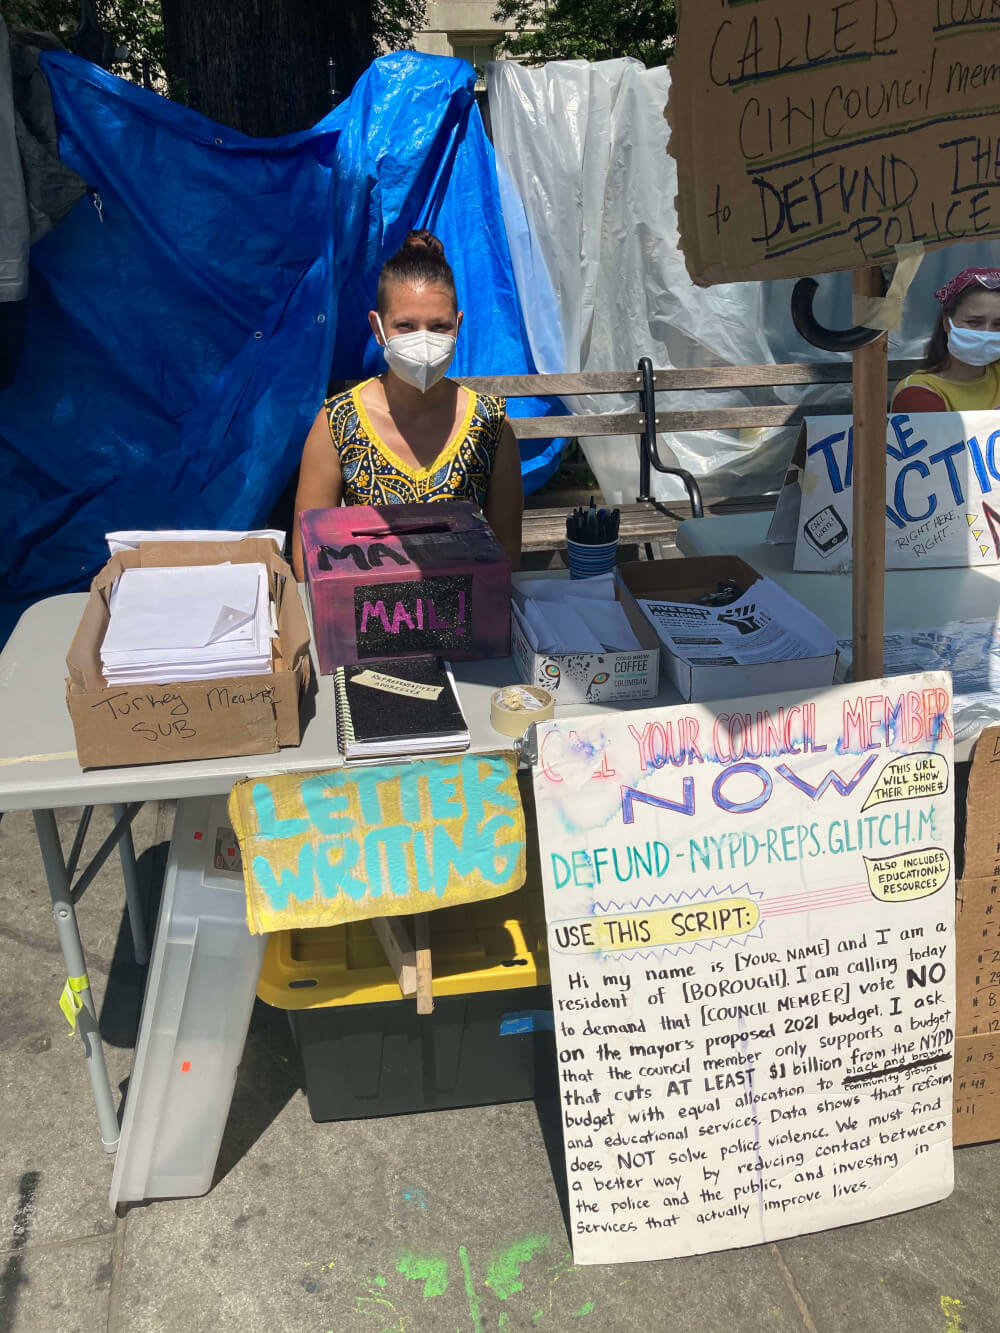 CALLED YOUR
CITY COUNCIL mem
to DEFUND THE
POLICE
TAKE
ACTIO
CALL!
WRITE!
RIGHT HERE,
RIGHT
MA
MAIL!
REPRESENTATIVES
ADDRESSES
Turkey Meatbl
SUB
COLD BREW
COFFEE
COLOMBIAN
FIVE EASY
ACTIONS
LETTER
WRITING
CALL YOUR COUNCIL MEMBER
NOW
THIS URL
WILL SHOW
THEIR PHONE#
DEFUND-NYPD-REPS.GLITCH.M
ALSO INCLUDES
EDUCATIONAL
RESOURCES
USE THIS SCRIPT:
Hi my name is [YOUR NAME] and I am a
resident of [BOROUGH]. I am calling today
to demand that [COUNCIL MEMBER] vote NO
on the mayor's proposed 2021 budget. I ask
that the council member only supports a budget
that cuts AT LEAST $1 billion from the NYPD
budget with equal allocation to black and brown
community groups
and educational services. Data shows that reform
does NOT solve police violence. We must find
a better way by reducing contact between
the police and the public, and investing in
services that actually improve lives.
# 13
# 49
# 11